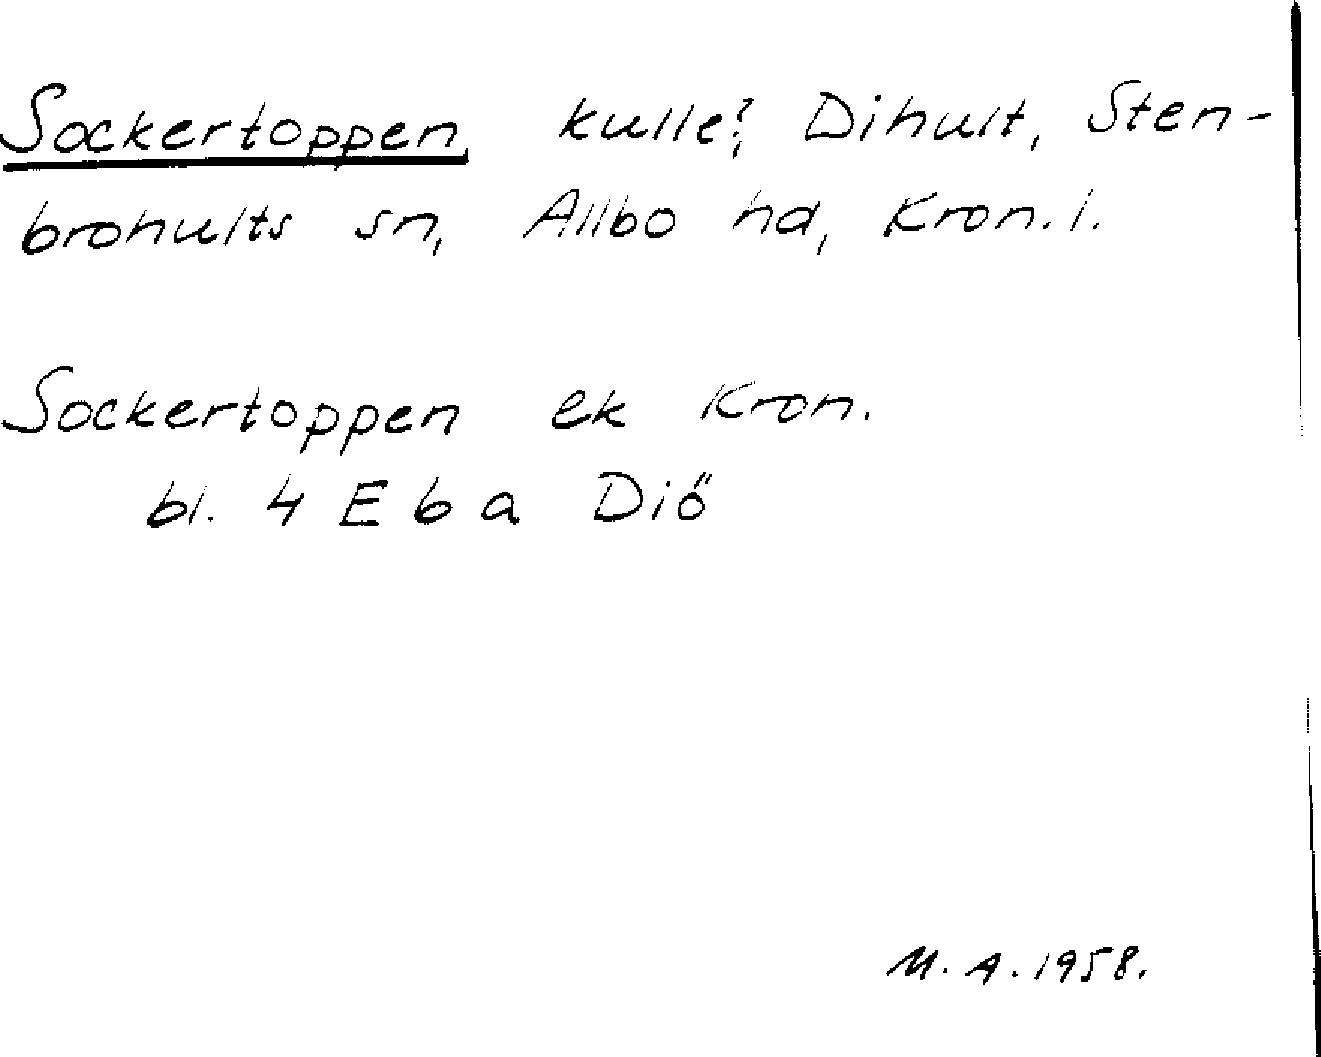 Sockertoppen, kulle?, Dihult, Sten-
brohults sn, Allbo hd, Kron. l.
Sockertoppen ek Kron.
bl. 4 E b a Diö
M. A. 1958.